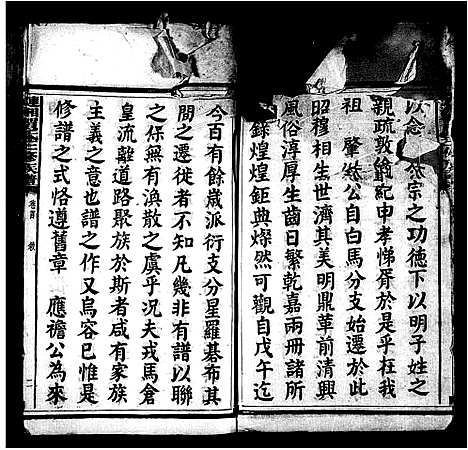 以念 宗之功德下以明子姓之
親疏敦倫紀申孝悌胥於是乎在我
祖 肇 公自白馬分支始遷於此
昭穆相生世濟其美明鼎革前清興
風俗淳厚生齒日繁乾嘉兩冊諸所
錄煌煌鉅典燦然可觀自戊午迄
今百有餘歲派衍支分星羅碁布其
間之遷徙者不知凡幾非有譜以聯
之保無有渙散之虞乎況夫戎馬倉
皇流離道路聚族於斯者咸有家族
主義之意也譜之作又烏容已惟是
修譜之式恪遵舊章 應襜公為來
卷首
二